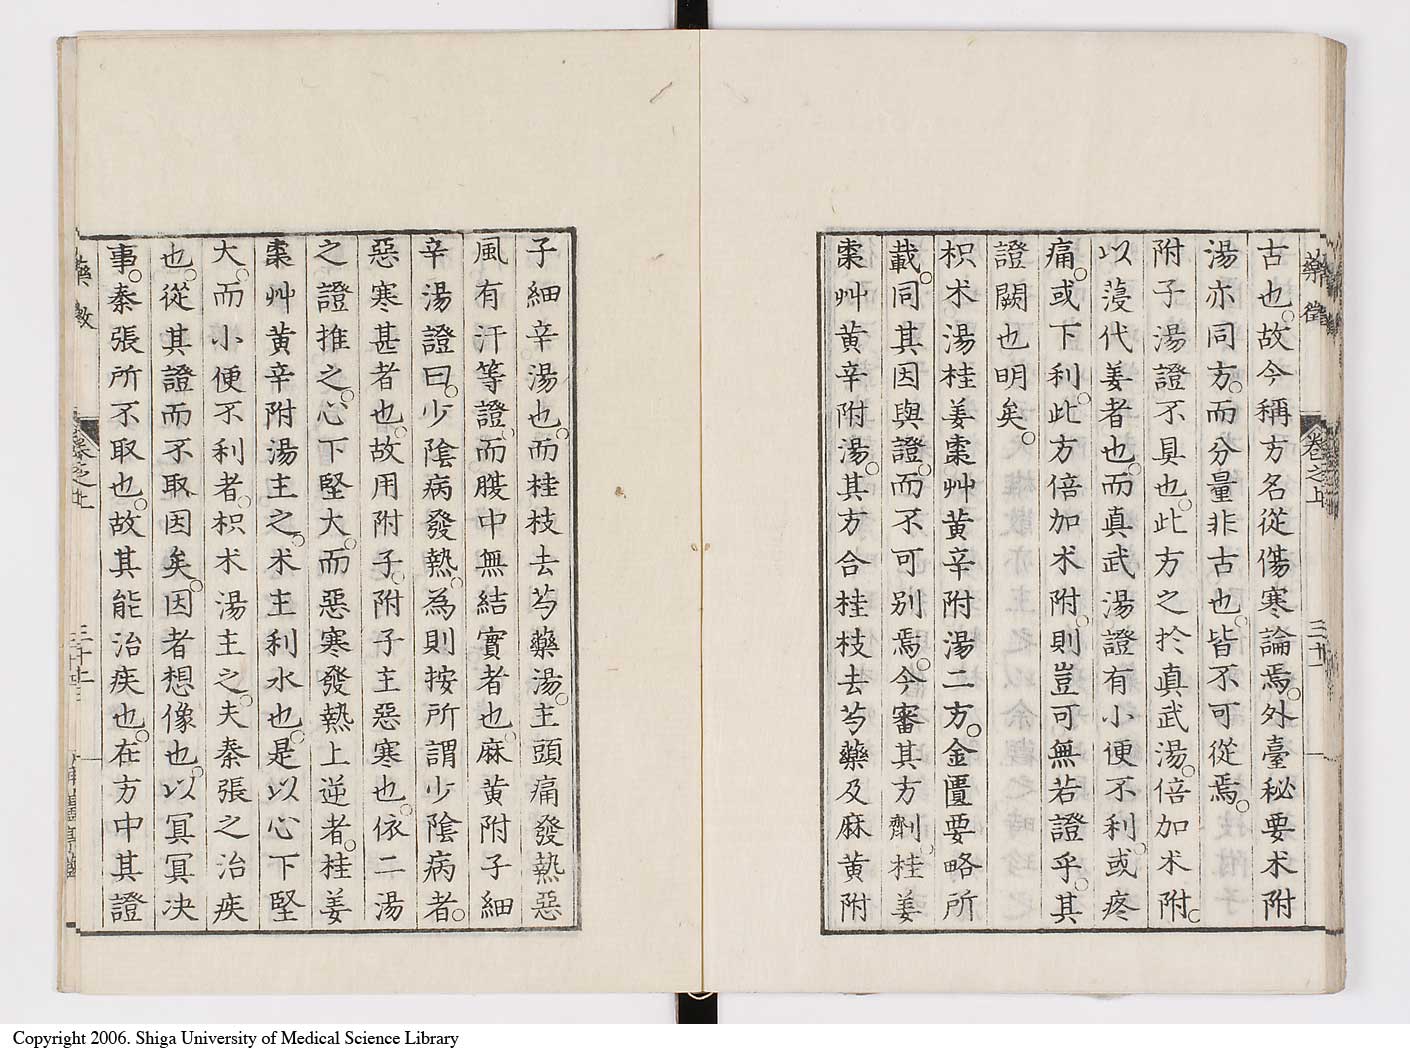 藥徵
卷之上
三十二
古也。故今稱方名從傷寒論焉。外臺秘要术附
湯亦同方。而分量非古也。皆不可從焉。
附子湯證不具也。此方之於真武湯。倍加术附。
以葠代姜者也。而真武湯證有小便不利。或疼
痛。或下利。此方倍加术附。則豈可無若證乎。其
證闕也明矣。
枳术湯桂姜棗艸黃辛附湯二方。金匱要略所
載。同其因與證。而不可別焉。今審其方劑。桂姜
棗艸黃辛附湯。其方合桂枝去芍藥及麻黃附
子細辛湯也。而桂枝去芍藥湯。主頭痛發熱惡
風有汗等證。而腹中無結實者也。麻黃附子細
辛湯證曰。少陰病發熱。為則按所謂少陰病者。
惡寒甚者也。故用附子。附子主惡寒也。依二湯
之證推之。心下堅大。而惡寒發熱上逆者。桂姜
棗艸黃辛附湯主之。术主利水也。是以心下堅
大。而小便不利者。枳术湯主之。夫秦張之治疾
也。從其證而不取因矣。因者想像也。以冥冥决
事。秦張所不取也。故其能治疾也。在方中其證
Copyright 2006. Shiga University of Medical Science Library